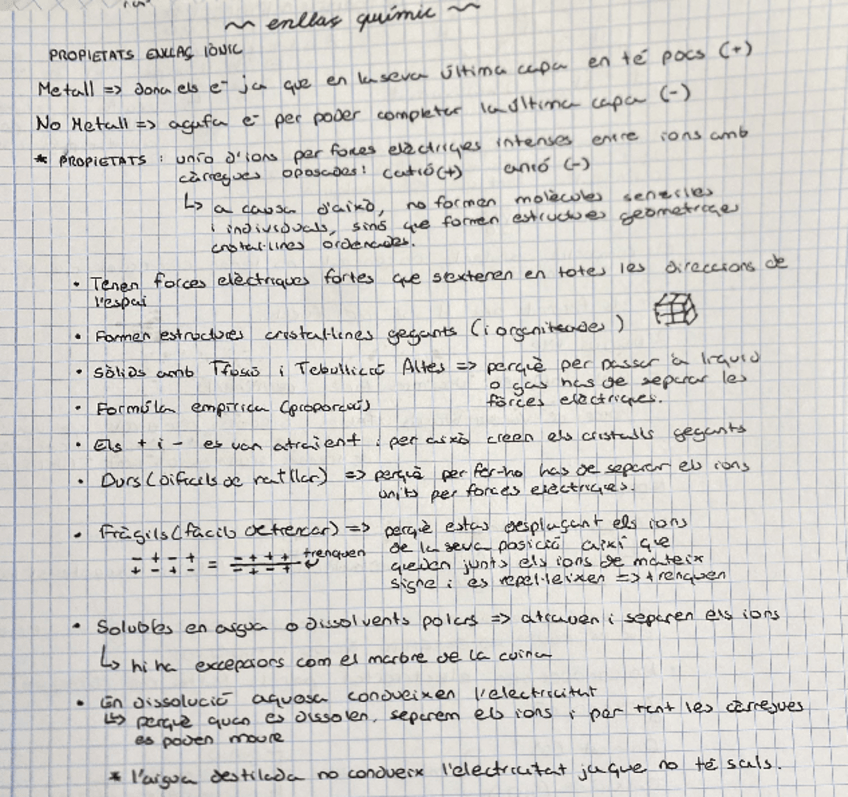 ~ enllaç químic ~
PROPIETATS ENLLAÇ IÒNIC
Metall => dona els e⁻ ja que en la seva última capa en té pocs (+)
No Metall => agafa e⁻ per poder completar la última capa (-)
* PROPIETATS : unió d'ions per forces elèctriques intenses entre ions amb
càrregues oposades: catió(+) anió (-)
↳ a causa d'això, no formen molècules senzilles
i individuals, sinó que formen estructures geomètriques
cristal·lines ordenades.
• Tenen forces elèctriques fortes que s'extenen en totes les direccions de
l'espai
• Formen estructures cristal·lines gegants (i organitzades)
• Sòlids amb Tfusió i Tebullició Altes => perquè per passar a líquid
o gas has de separar les
forces elèctriques.
• Formúla empírica (proporció)
• Els + i - es van atraient i per això creen els cristalls gegants
• Durs (difícils de ratllar) => perquè per fer-ho has de separar els ions
units per forces elèctriques.
• Fràgils (fàcils de trencar) => perquè estas desplaçant els ions
- + - + = - + + + trenquen de la seva posició així que
+ - + - + - - + queden junts els ions de mateix
signe i es repel·leixen => trenquen
• Solubles en aigua o dissolvents polars => atrauen i separen els ions
↳ hi ha excepcions com el marbre de la cuina
• En dissolució aquosa condueixen l'electricitat
↳ perquè quan es dissolen, separem els ions i per tant les càrregues
es poden moure
* l'aigua destilada no condueix l'electricitat ja que no té sals.